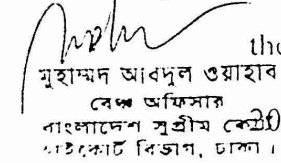 the
মুহাম্মদ আবদুল ওয়াহাব
বেঞ্চ অফিসার
বাংলাদেশ সুপ্রীম কোর্ট
হাইকোর্ট বিভাগ, ঢাকা ।